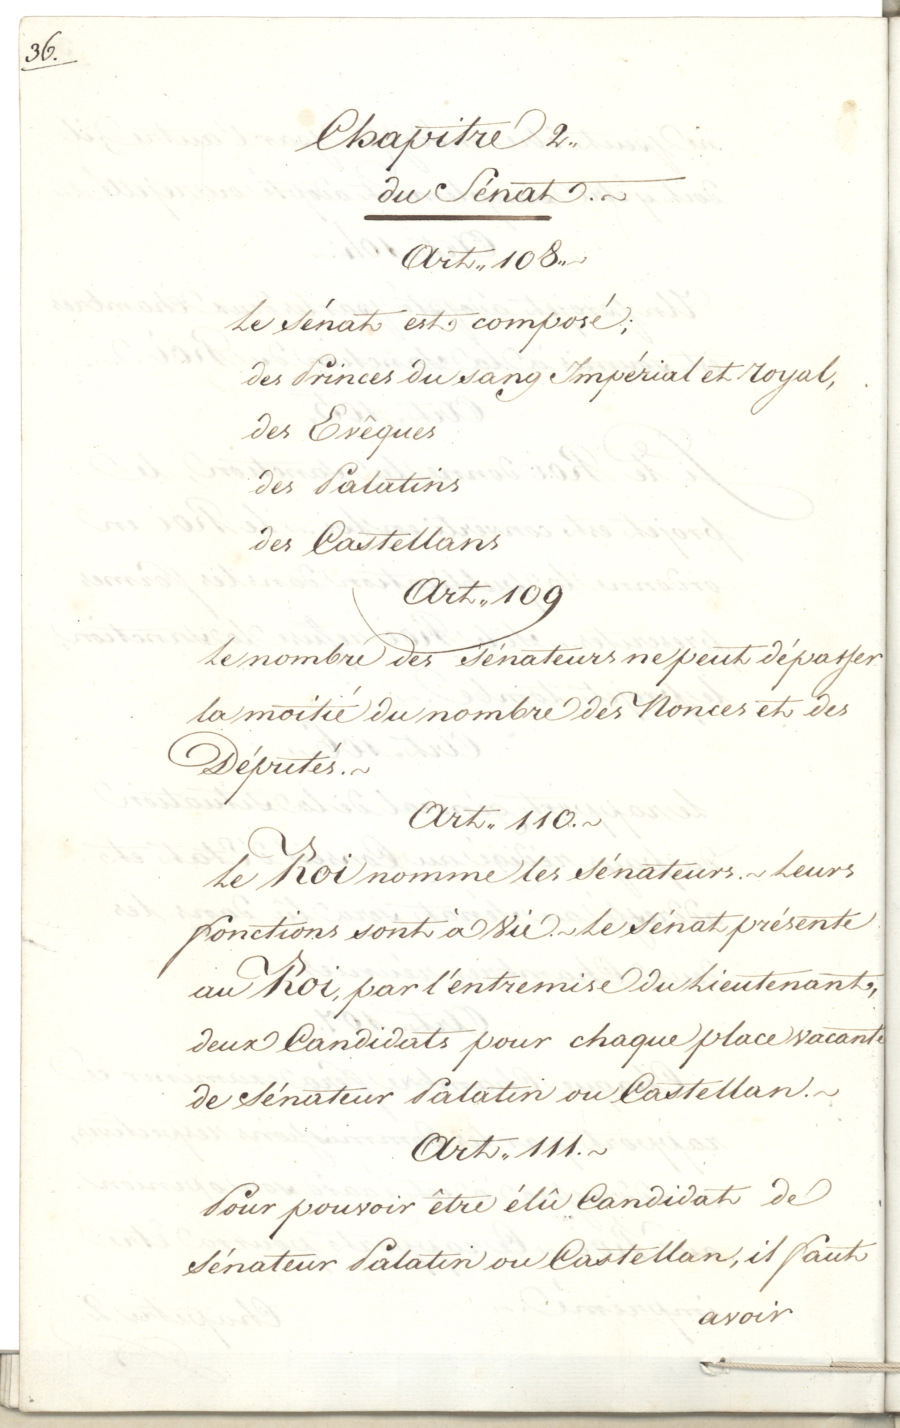 36.
Chapitre 2„
du Sénat.~
Art„ 108„~
Le Sénat est composé;
des Princes du sang Impérial et royal,
des Evêques
des Palatins
des Castellans
Art„ 109
Le nombre des Sénateurs ne peut dépasser
la moitié du nombre des Nonces et des
Députés.~
Art„ 110.~
Le Roi nomme les Sénateurs.~ Leurs
fonctions sont à vie.~ Le Sénat présente
au Roi, par l'entremise du Lieutenant,
deux Candidats pour chaque place vacante
de Sénateur Palatin ou Castellan.~
Art„ 111.~
Pour pouvoir être élû Candidat de
Sénateur Palatin ou Castellan, il faut
avoir